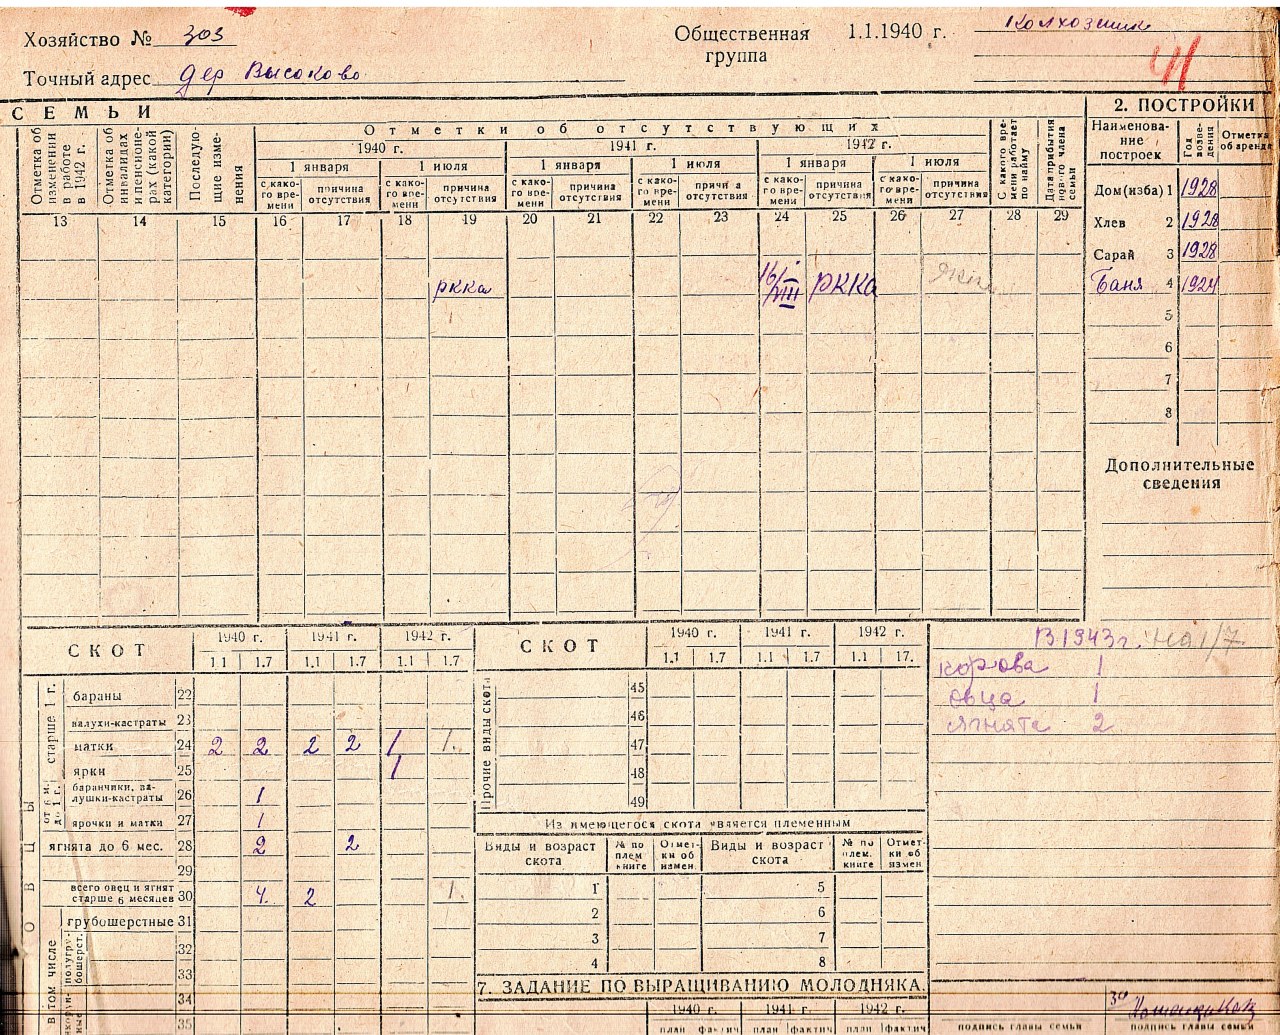 Хозяйство № 303
Общественная группа 1.1.1940 г. Колхозник
41
Точный адрес дер Высоково
СЕМЬИ
Отметка об изменении в работе в 1942 г.
Отметка об инвалидах и пенсионерах (какой категории)
Последующие изменения
Отметки об отсутствующих
1940 г. 1941 г. 1942 г.
1 января 1 июля 1 января 1 июля 1 января 1 июля
с какого времени причина отсутствия с какого времени причина отсутствия с какого времени причина отсутствия с какого времени причина отсутствия с какого времени причина отсутствия с какого времени причина отсутствия
С какого времени работает по найму
Дата прибытия нового члена семьи
13 14 15 16 17 18 19 20 21 22 23 24 25 26 27 28 29
РККА 16/VIII РККА
2. ПОСТРОЙКИ
Наименование построек Год возведения Отметка об аренде
Дом (изба) 1 1928
Хлев 2 1928
Сарай 3 1928
Баня 4 1924
5
6
7
8
Дополнительные сведения
СКОТ 1940 г. 1941 г. 1942 г.
1.1 1.7 1.1 1.7 1.1 1.7
ОВЦЫ
старше 1 г.
бараны 22
валухи-кастраты 23
матки 24 2 2 2 2 1 1.
ярки 25 1
от 6 м. до 1 г.
баранчики, валушки-кастраты 26 1
ярочки и матки 27 1
ягнята до 6 мес. 28 2 2
29
всего овец и ягнят старше 6 месяцев 30 4. 2 1.
в том числе
грубошерстные 31
полугрубошерст. 32
33
34
35
СКОТ 1940 г. 1941 г. 1942 г.
1.1 1.7 1.1 1.7 1.1 17.
Прочие виды скота
45
46
47
48
49
Из имеющегося скота является племенным
Виды и возраст скота № по плем. книге Отметки об измен. Виды и возраст скота № по плем. книге Отметки об измен.
1 5
2 6
3 7
4 8
7. ЗАДАНИЕ ПО ВЫРАЩИВАНИЮ МОЛОДНЯКА.
1940 г. 1941 г. 1942 г.
план фактич план фактич план фактич
В 1943 г. на 1/7
корова 1
овца 1
ягнята 2
за
подпись главы семьи подпись главы семьи